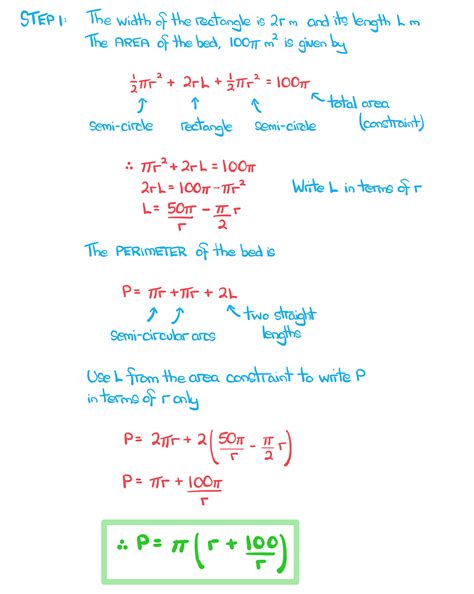 STEP 1: The width of the rectangle is 2r m and its length L m
The AREA of the bed, 100π m² is given by
½πr² + 2rL + ½πr² = 100π
semi-circle rectangle semi-circle total area (constraint)
∴ πr² + 2rL = 100π
2rL = 100π - πr²
L = 50π/r - π/2 r Write L in terms of r
The PERIMETER of the bed is
P = πr + πr + 2L
semi-circular arcs two straight lengths
Use L from the area constraint to write P
in terms of r only
P = 2πr + 2(50π/r - π/2 r)
P = πr + 100π/r
∴ P = π(r + 100/r)